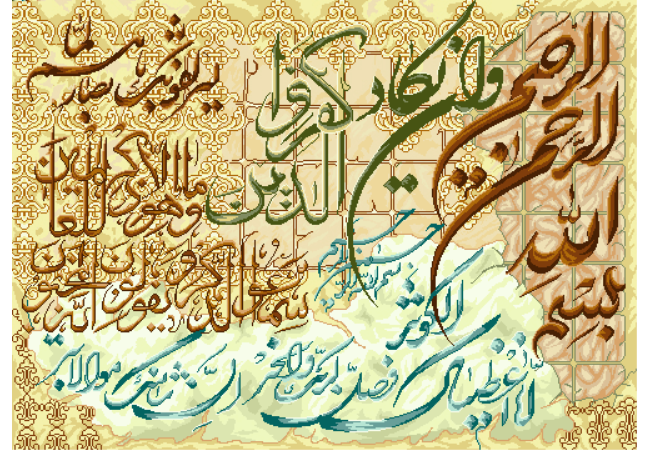 بسم الله الرحمن الرحيم
وان يكاد الذين كفروا
ليزلقونك بابصارهم لما
سمعوا الذكر ويقولون انه لمجنون
وما هو الا ذكر للعالمين
بسم الله الرحمن الرحيم
انا اعطيناك الكوثر
فصل لربك وانحر ان شانئك هو الابتر